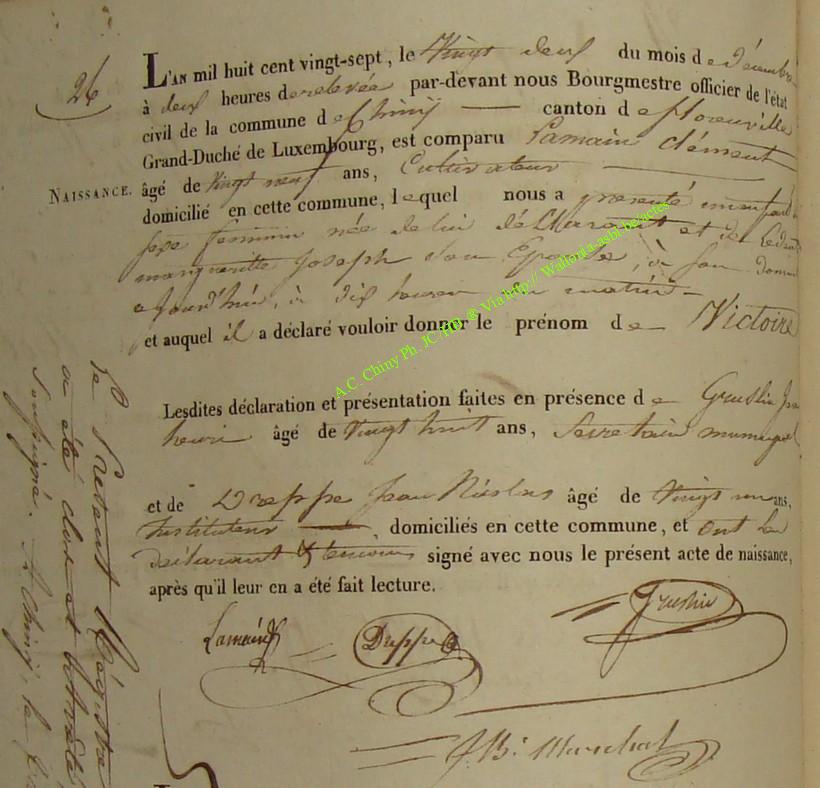 26
NAISSANCE.
L'AN mil huit cent vingt-sept, le Vingt deux du mois de décembre
à deux heures de relevée par-devant nous Bourgmestre officier de l'état
civil de la commune de Chinÿ canton de florenville
Grand-Duché de Luxembourg, est comparu Lamain clément
âgé de vingt neuf ans, Cultivateur
domicilié en cette commune, lequel nous a presenté un enfant du
sexe feminin née de lui déclarant et de
marguerite Joseph Son Epouse, à Son
ajourd'hui, à dix heures du matin
et auquel il a déclaré vouloir donner le prénom de Victoire
Lesdites déclaration et présentation faites en présence de Gruslin Jean
henri âgé de vingt huit ans, Secretaire
et de Dreppe Jean Nicolas âgé de Vingt un ans,
Instituteur domiciliés en cette commune, et ont le
declarant & temoins signé avec nous le présent acte de naissance,
après qu'il leur en a été fait lecture.
Lamain
Dreppe
Gruslin
JB. Marchal
Le Présent Régistre
a été clos et arrêté
Soussigné. A Chinÿ, le
A.C. Chiny Ph. JC. HB. @ Via http// Wallonia-asbl.be/actes